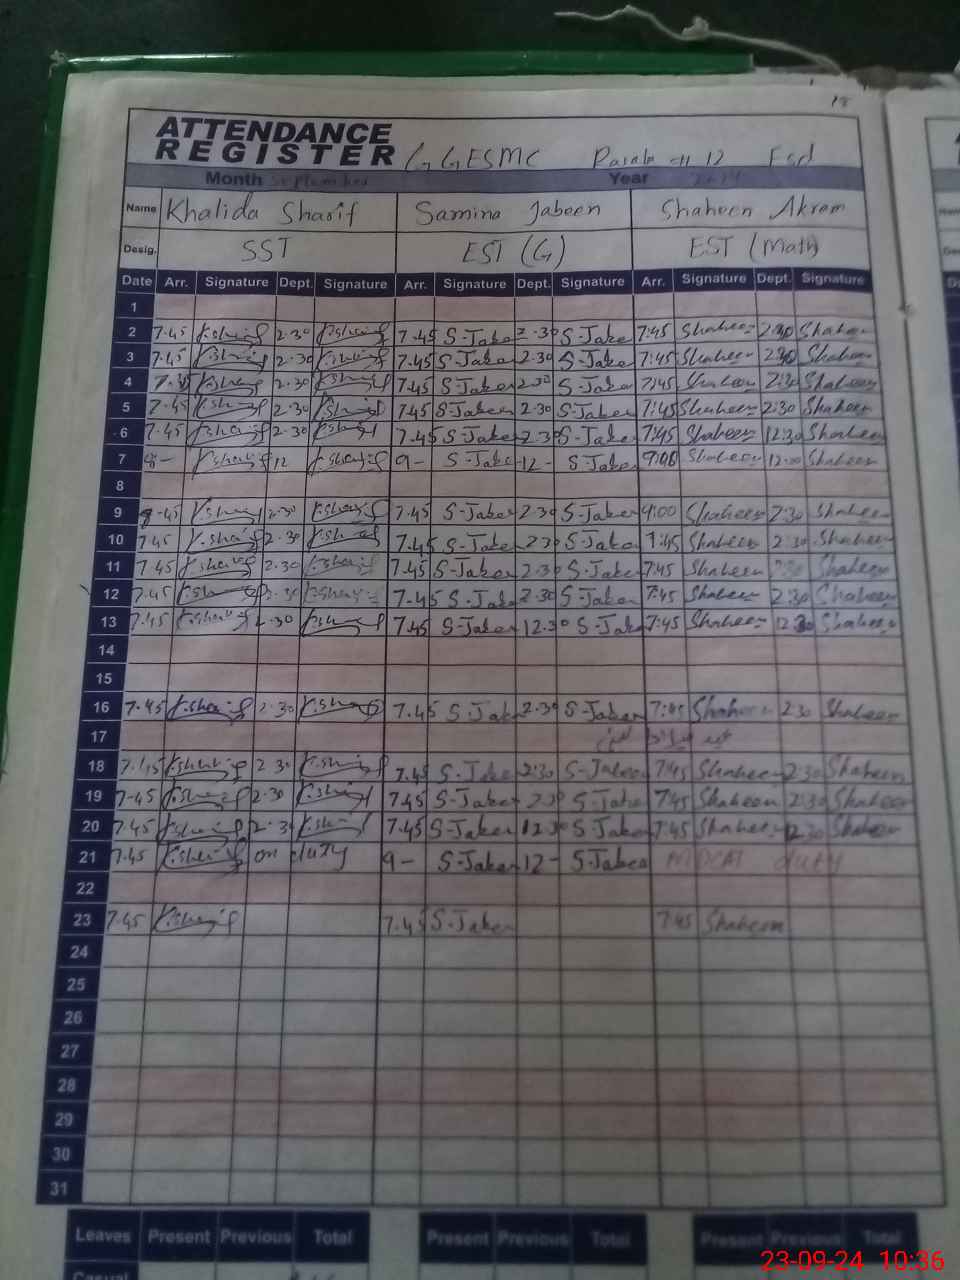 18
ATTENDANCE
REGISTER GGESMC # 12 Fsd
Month September Year 2024
Name Khalida Sharif Samina Jabeen Shaheen Akram
Desig. SST EST (G) EST (Math)
Date Arr. Signature Dept. Signature Arr. Signature Dept. Signature Arr. Signature Dept. Signature
1
2 7.45 K.sharif 2.30 K.sharif 7.45 S-Jabeen 2.30 S-Jabeen 7:45 Shaheen 2:30 Shaheen
3 7.45 K.sharif 2.30 K.sharif 7.45 S-Jabeen 2.30 S-Jabeen 7:45 Shaheen 2:30 Shaheen
4 K.sharif 2.30 K.sharif 7.45 S-Jabeen 2.30 S-Jabeen 7:45 Shaheen 2:30 Shaheen
5 7.45 K.sharif 2.30 K.sharif 7.45 S-Jabeen 2.30 S-Jabeen 7:45 Shaheen 2:30 Shaheen
6 7.45 K.sharif 2.30 K.sharif 7.45 S-Jabeen 2.30 S-Jabeen 7:45 Shaheen 12:30 Shaheen
7 8- K.sharif 12 K.sharif 9- S-Jabeen 12- S-Jabeen 9:00 Shaheen 12:00 Shaheen
8
9 K.sharif 2.30 K.sharif 7.45 S-Jabeen 2.30 S-Jabeen Shaheen 2:30 Shaheen
10 7.45 K.sharif 2.30 K.sharif 7.45 S-Jabeen 2.30 S-Jabeen 7:45 Shaheen 2:30 Shaheen
11 7.45 K.sharif 2.30 K.sharif 7.45 S-Jabeen 2.30 S-Jabeen 7:45 Shaheen 2:30 Shaheen
12 7.45 K.sharif 2.30 K.sharif 7.45 S-Jabeen 2.30 S-Jabeen 7:45 Shaheen 2:30 Shaheen
13 7.45 K.sharif 2.30 K.sharif 7.45 S-Jabeen 12.30 S-Jabeen 7:45 Shaheen 12:30 Shaheen
14
15
16 7.45 K.sharif 2.30 K.sharif 7.45 S-Jabeen 2.30 S-Jabeen 7:45 Shaheen 2:30 Shaheen
17 عید میلاد النبی
18 7.45 K.sharif 2.30 K.sharif 7.45 S-Jabeen 2:30 S-Jabeen 7:45 Shaheen 2:30 Shaheen
19 7-45 K.sharif 2.30 K.sharif 7.45 S-Jabeen 2.30 S-Jabeen 7:45 Shaheen 2:30 Shaheen
20 7.45 K.sharif 2.30 K.sharif 7.45 S-Jabeen 12.30 S-Jabeen 7:45 Shaheen 12:30 Shaheen
21 7.45 K.sharif on duty 9- S-Jabeen 12- S-Jabeen MDCAT duty
22
23 7.45 K.sharif 7.45 S-Jabeen 7:45 Shaheen
24
25
26
27
28
29
30
31
Leaves Present Previous Total Present Previous Total Present Previous Total
Casual
23-09-24 10:36